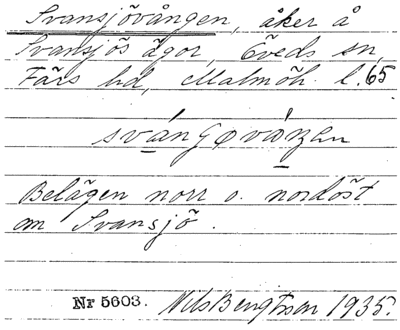 Svansjövången, åker å
Svansjös ägor, Öveds sn,
Färs hd, Malmöh. l. 65
svángøváŋen
Belägen norr o. nordöst
om Svansjö.
Nr 5603. Nils Bengtsson 1935.